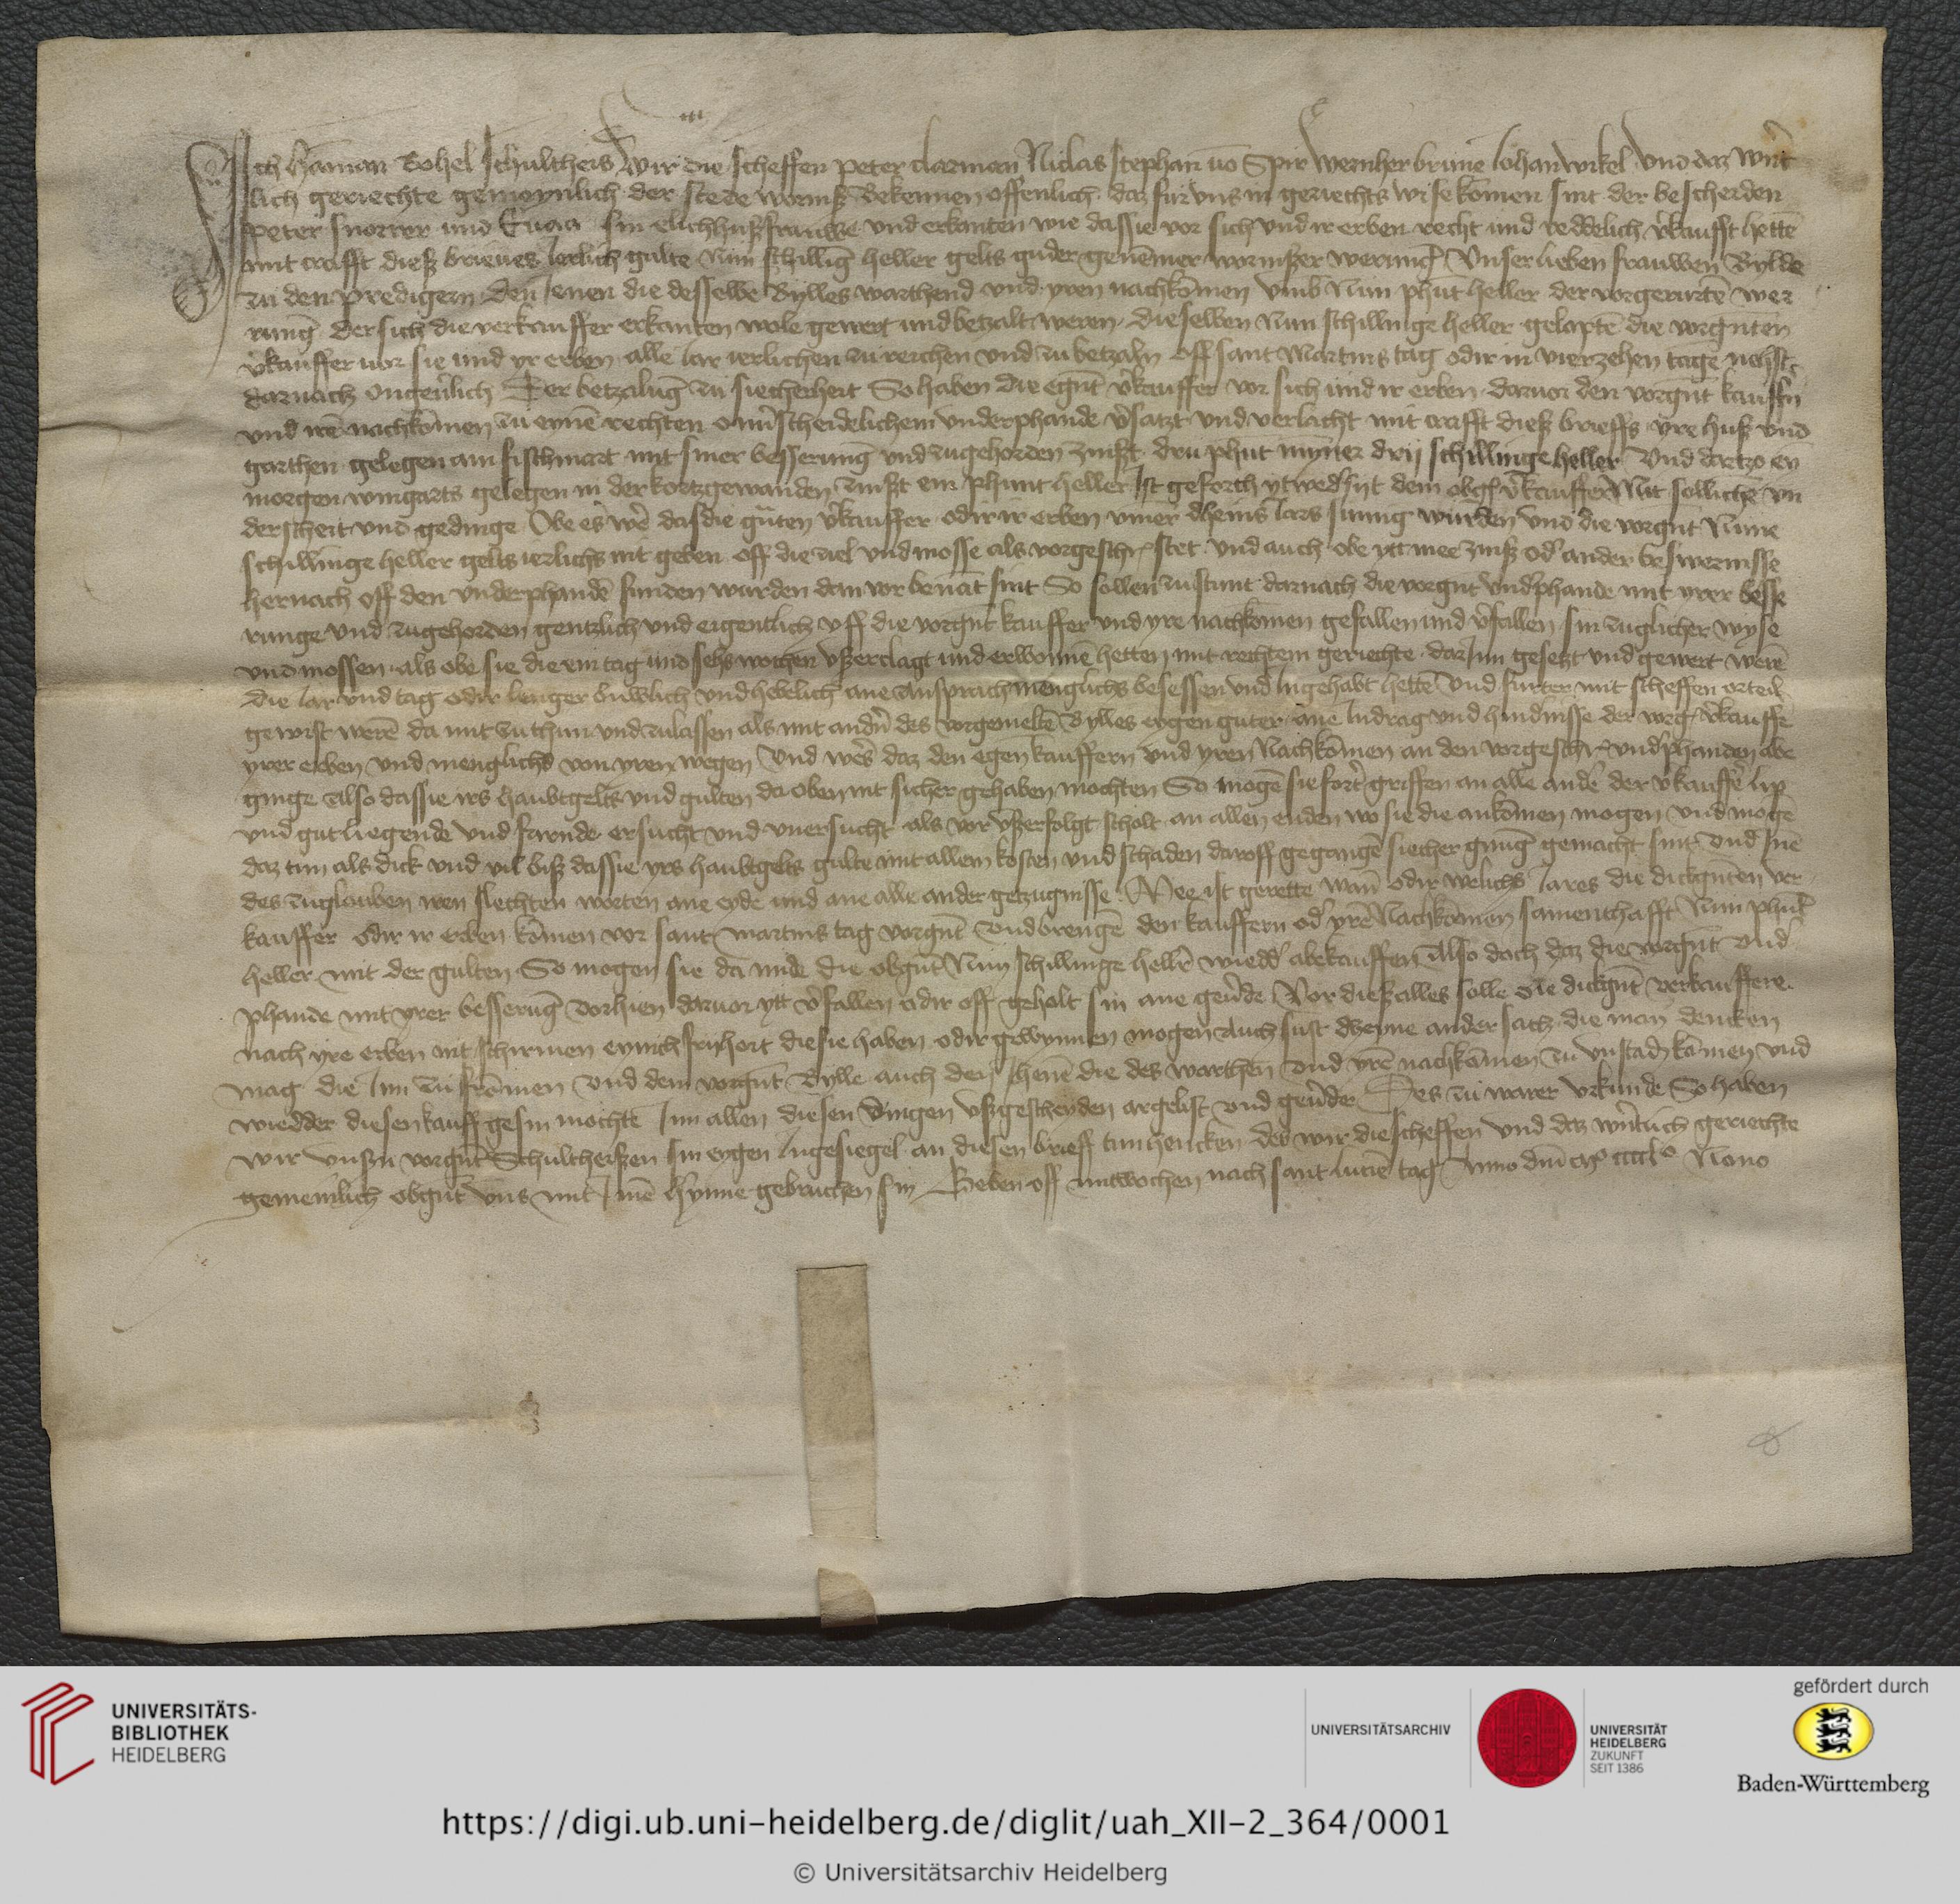 Ich Hāman Bohel Schultheis Wir die scheffen peter clarman Niclas stephan vō Spir Wernher brune Iohan wikel vnd daz wnt
lich geriechte gemeynlich der stede wormß Bekennen offenlich daz fur vns in geriechts wise komen sint der bescheiden
peter snorrer und Eua sin elichhußfrauwe und erkanten wie dassie vor sich vnd ir erben recht und reddelich vkaufft hettē
mit crafft dieß brieues Ierlich gulte Nun schilling heller gelts guder genemer wormßer werung Vnser lieben frauwen Bylde
zu den predigern den Ienen die desselbē bylles warthend vnd yren nachkōmen vmb Nun phūt heller der vorgerurtē wer
rung der sich die verkauffer erkanten wole gewert und betzalt weren dieselben Nun schillinge heller gelaptē die vorgnten
vkauffer vor sie und yr erben alle Iar ierlichen zu reichen vnd zu betzaln off sant Martins tag odir in vierzehen tage nehst
darnach ongeulich Der betzalug zu siecherheit So haben die egnt vkauffer vor sich und ir erben daruor den vorgnt kauffn
vnd irē nachkōmen zu eynē rechten onuscheidelichem underphande vsatzt vnd verlacht mit crafft dieß brieffs yre huß vnd
garthen gelegen am fischmart mit siner besserung vnd zugehorden zinst dru phūt myner drij schillinge heller Vnd dartzo ey
morgen wingarts gelegen in der kortzgewanden zinst ein phunt heller Ist geforch ytwedsijt dem obg vkauffer Mit sollichē vn
derscheit vnd gedinge Obe es we das die gūten vkauffer odir ir erben vmer dheins Iars sumig wurden vnd die vorgnt Nune
schillinge heller gelts ierlichs nit geben off die ziel vnd mosse als vorgeschr stet vnd auch obe ytt mee zinß od ander beswernisse
hernach off den vnderphandē funden wurden dan vor benāt sint So sollen zustunt darnach die vorgnt vndphande mit yrer besse
runge vnd zugehorden gentzlich vnd eigentlich vff die vorgnt kauffer vnd yre nachkomen gefallen und vfallen sin zuglicher wyse
vnd mossen als obe sie die ein tag und sehs wochen vßerclagt und erwonnē hetten mit rechtem geriechte dar In gesetzt vnd gewert werē
die Iar vnd tag odir lenger buwlich vnd hebelich ane ansprach mengliches besessen vnd Ingehabt hettē vnd furter mit scheffen orteil
gewist werē da mit zuthun vnd zulassen als mit andn des vorgemeltē Bylles eygen guter ane Indrag vnd hindnisse der vorg vkauffē
yrer erben vnd menglichs von yren wegen Vnd wes daz den egen kauffern vnd yren Nachkōmen an den vorgeschr vndphanden abe
ginge Also dassie irs haubtgelts vnd gulten da oben nit sicher gehaben mochten So mogē sie fort griffen an alle andē der vkauffē lip
vnd gut liegende vnd farnde ersucht vnd vnersucht als vor vßerfolgt scholt an allen enden wo sie die ankōmen mogen vnd mogē
daz tun als dick vnd vil biß dassie yrs haubtgelts gulte mit allem kosten vnd schaden daroff gegangē siecher gnug gemacht sint vnd Inē
des zuglauben iren slechten worten ane eyde und ane alle ander getzugnisse Nee ist gerette wan odir welichs Iares die dickgnten ver
kauffer odir ir erben kōmen vor sant martins tag vorgnt vnd brengē den kauffern od yrē Nachkōmen samenthafft Nun phūt
heller mit der gulten So mogen sie da mide die obgnt Nun schillinge hellr wiedd abekauffen Also doch daz die vorgnt vnd
phande mit yrer besserug vorhien daruor ytt vfallen odir off geholt sin ane geude Vor dieß alles solle die dickgnt verkauffere
nach yre erben nit schirmen eynich fryhort die sie haben odir gewynnen mogen Auch sust dheyne ander sach die man dencken
mag die Im zu frōmen vnd dem vorgnt Bylle auch den Ihenē die des warthen vnd yrē nachkōmen zu vnstadē kōmen vnd
wiedder diesen kauff gesin mochte Inn allen diesen Dingen vßgescheyden argelist vnd geude Des zu warer vrkunde So haben
wir vnßn vorgnt Schultheißen sin eygen Ingesiegel an diesen brieff tun hencken des wir die scheffen vnd daz wntlich geriechte
gemeinlich obgnt vns mit Imē hynne gebruchen sin Geben off mitwochen nach sant lucien tag Anno dni Mo ccccl o Nono
UNIVERSITÄTS-
BIBLIOTHEK
HEIDELBERG
UNIVERSITÄTSARCHIV
UNIVERSITÄT
HEIDELBERG
ZUKUNFT
SEIT 1386
gefördert durch
Baden-Württemberg
https://digi.ub.uni-heidelberg.de/diglit/uah_XII-2_364/0001
© Universitätsarchiv Heidelberg